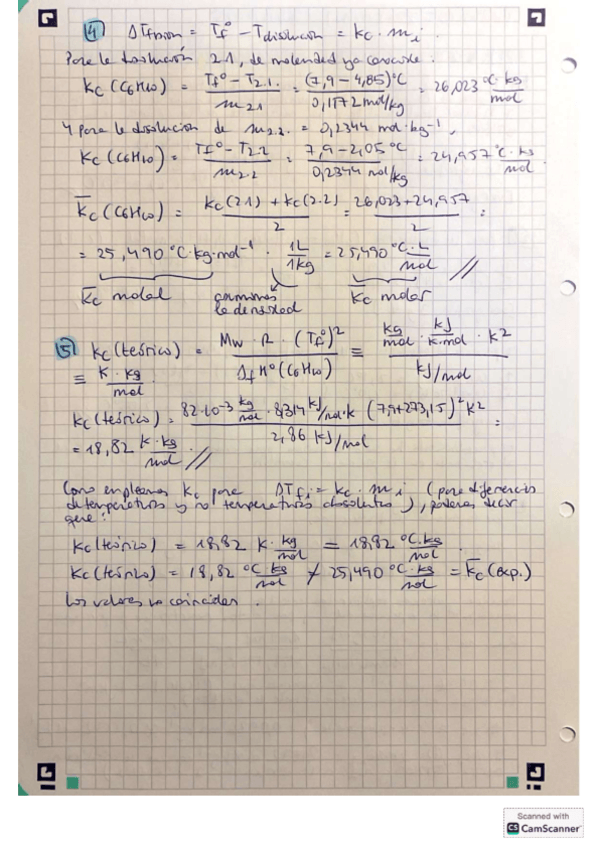 4) ΔTfusión = Tf° − Tdisolución = Kc · mi
Para la disolución 2.1, de molalidad ya conocida:
Kc (C6H10) = (Tf° − T2.1) / m2.1 = (7,9 − 4,85)°C / 0,1172 mol/kg = 26,023 °C·kg/mol
Y para la disolución de m2.2. = 0,2344 mol·kg⁻¹,
Kc (C6H10) = (Tf° − T2.2) / m2.2 = 7,9 − 2,05 °C / 0,2344 mol/kg = 24,957 °C·kg/mol
K̄c (C6H10) = (Kc(2.1) + Kc(2.2)) / 2 = (26,023 + 24,957) / 2 =
= 25,490 °C·kg·mol⁻¹ · 1L/1kg = 25,490 °C·L/mol //
K̄c molal la densidad K̄c molar
5) Kc (teórico) = Mw · R · (Tf°)² / ΔfH°(C6H10) ≡ kg/mol · kJ/K·mol · K² / kJ/mol
≡ K·kg/mol
Kc (teórico) = 82·10⁻³ kg/mol · 8,314 kJ/mol·K (7,9+273,15)² K² / 2,86 kJ/mol =
= 18,82 K·kg/mol //
Como empleamos Kc para ΔTfi = Kc · mi (para diferencias
de temperaturas y no temperaturas absolutas), podemos decir
que:
Kc (teórico) = 18,82 K·kg/mol = 18,82 °C·kg/mol.
Kc (teórico) = 18,82 °C·kg/mol ≠ 25,490 °C·kg/mol = K̄c (exp.)
Los valores no coinciden.
Scanned with
CS CamScanner